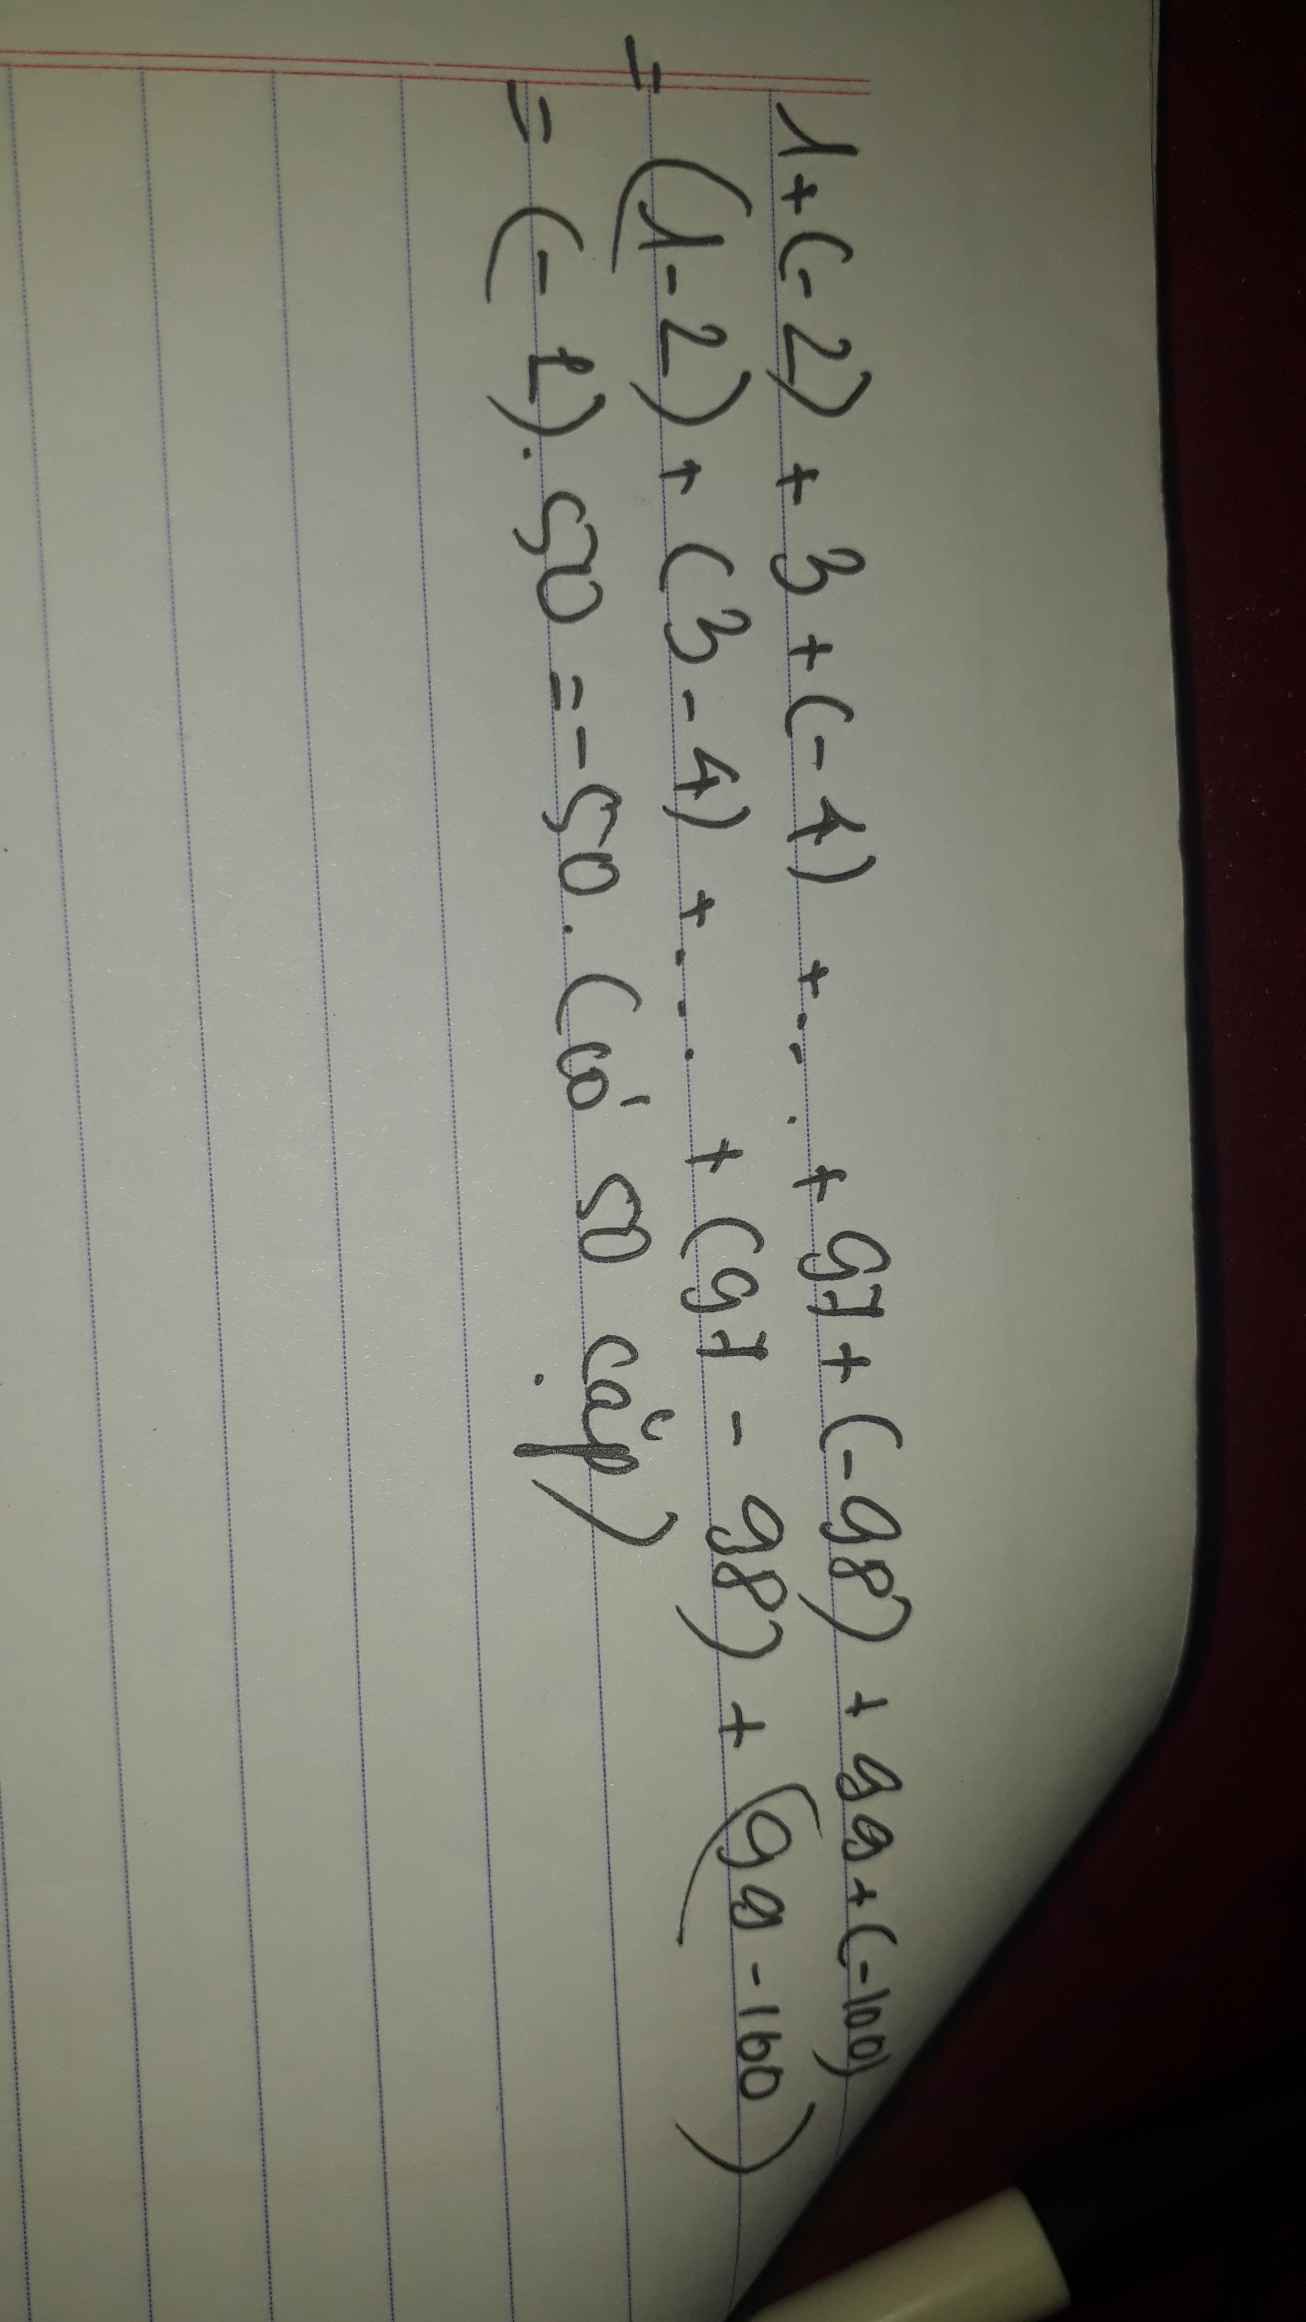 1 + (-2) + 3 + (-4) + ... + 97 + (-98) + 99 + (-100)
= (1 - 2) + (3 - 4) + ... + (97 - 98) + (99 - 100)
= (-1) . 50 = -50. (có 50 cặp)